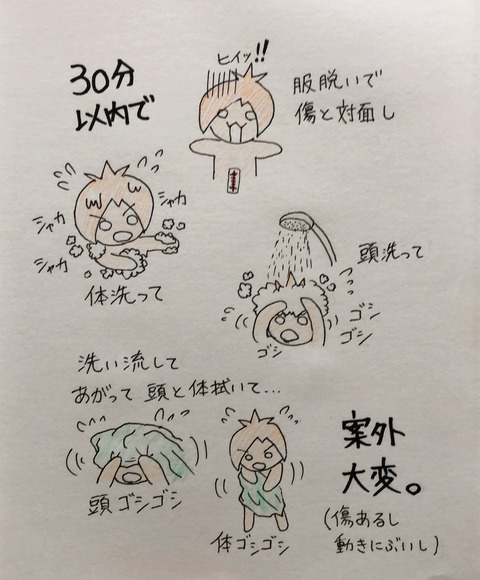 30分
以内で
ヒイッ!!
服脱いで
傷と対面し
シャカ
シャカ
シャカ
体洗って
頭洗って
ゴシ
ゴシ
ゴシ
洗い流して
あがって 頭と体拭いて…
頭ゴシゴシ
体ゴシゴシ
案外
大変。
(傷あるし
動きにぶいし)